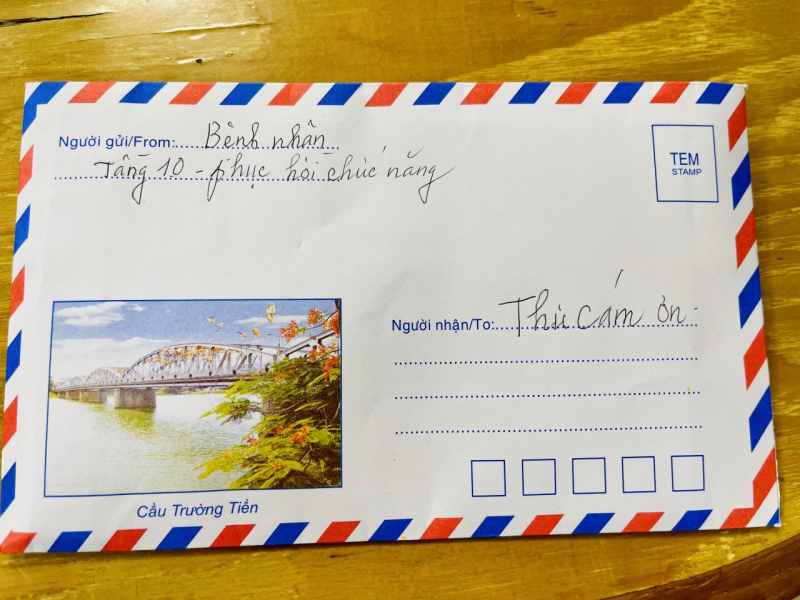 Người gửi/From: Bệnh nhân
Tầng 10 - phục hồi chức năng
TEM
STAMP
Người nhận/To: Thư cám ơn
Cầu Trường Tiền